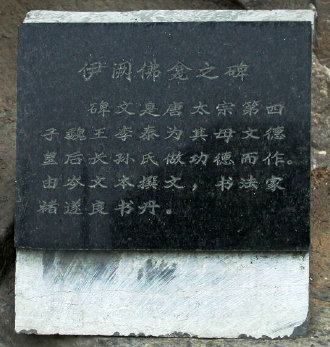 伊阙佛龛之碑
碑文是唐太宗第四
子魏王李泰为其母文德
皇后长孙氏做功德而作。
由岑文本撰文，书法家
褚遂良书丹。